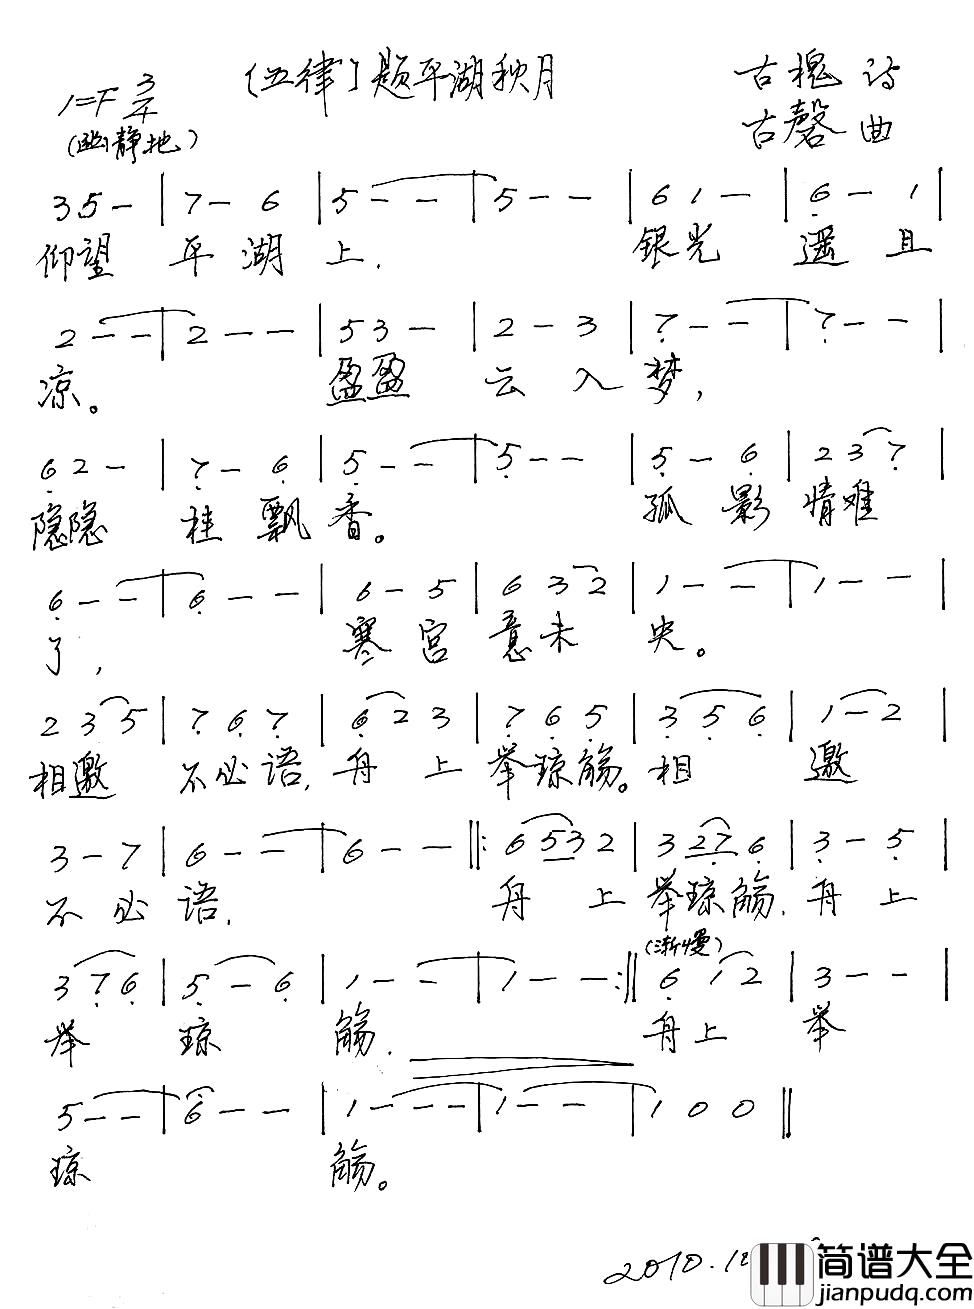 〔五律〕题平湖秋月
1=F 3/4
(幽静地)
古槐 诗
古磬 曲
3 5 - | 7 - 6 | 5 - - | 5 - - | 6 1 - | 6̣ - 1 |
仰望 平湖上, 银光 遥且
2 - - | 2 - - | 5 3 - | 2 - 3 | 7̣ - - | 7̣ - - |
凉。 盈盈 云入梦,
6̣ 2 - | 7̣ - 6̣ | 5̣ - - | 5̣ - - | 5̣ - 6̣ | 2 3 7̣ |
隐隐 桂飘香。 孤影 情难
6̣ - - | 6̣ - - | 6 - 5 | 6 3 2 | 1 - - | 1 - - |
了, 寒宫 意未央。
2 3 5 | 7̣ 6̣ 7̣ | 6̣ 2 3 | 7̣ 6̣ 5̣ | 3̣ 5̣ 6̣ | 1 - 2 |
相邀 不必语, 舟上 举琼觞。相 邀
3 - 7 | 6 - - | 6 - - ‖: 6 5 3 2 | 3 2 7̣ 6̣ | 3̣ - 5̣ |
不必语, 舟上 举琼觞, 舟上
(渐慢)
3 7̣ 6̣ | 5̣ - 6̣ | 1 - - | 1 - - :‖ 6̣ 1 2 | 3 - - |
举 琼 觞, 舟上 举
5 - - | 6 - - | 1 - - - | 1 - - | 1 0 0 ‖
琼 觞。
2010.1
简谱大全
jianpudq.com